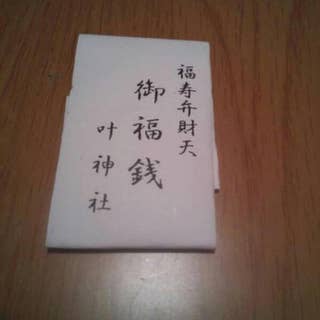 福寿弁財天
御福銭
叶神社